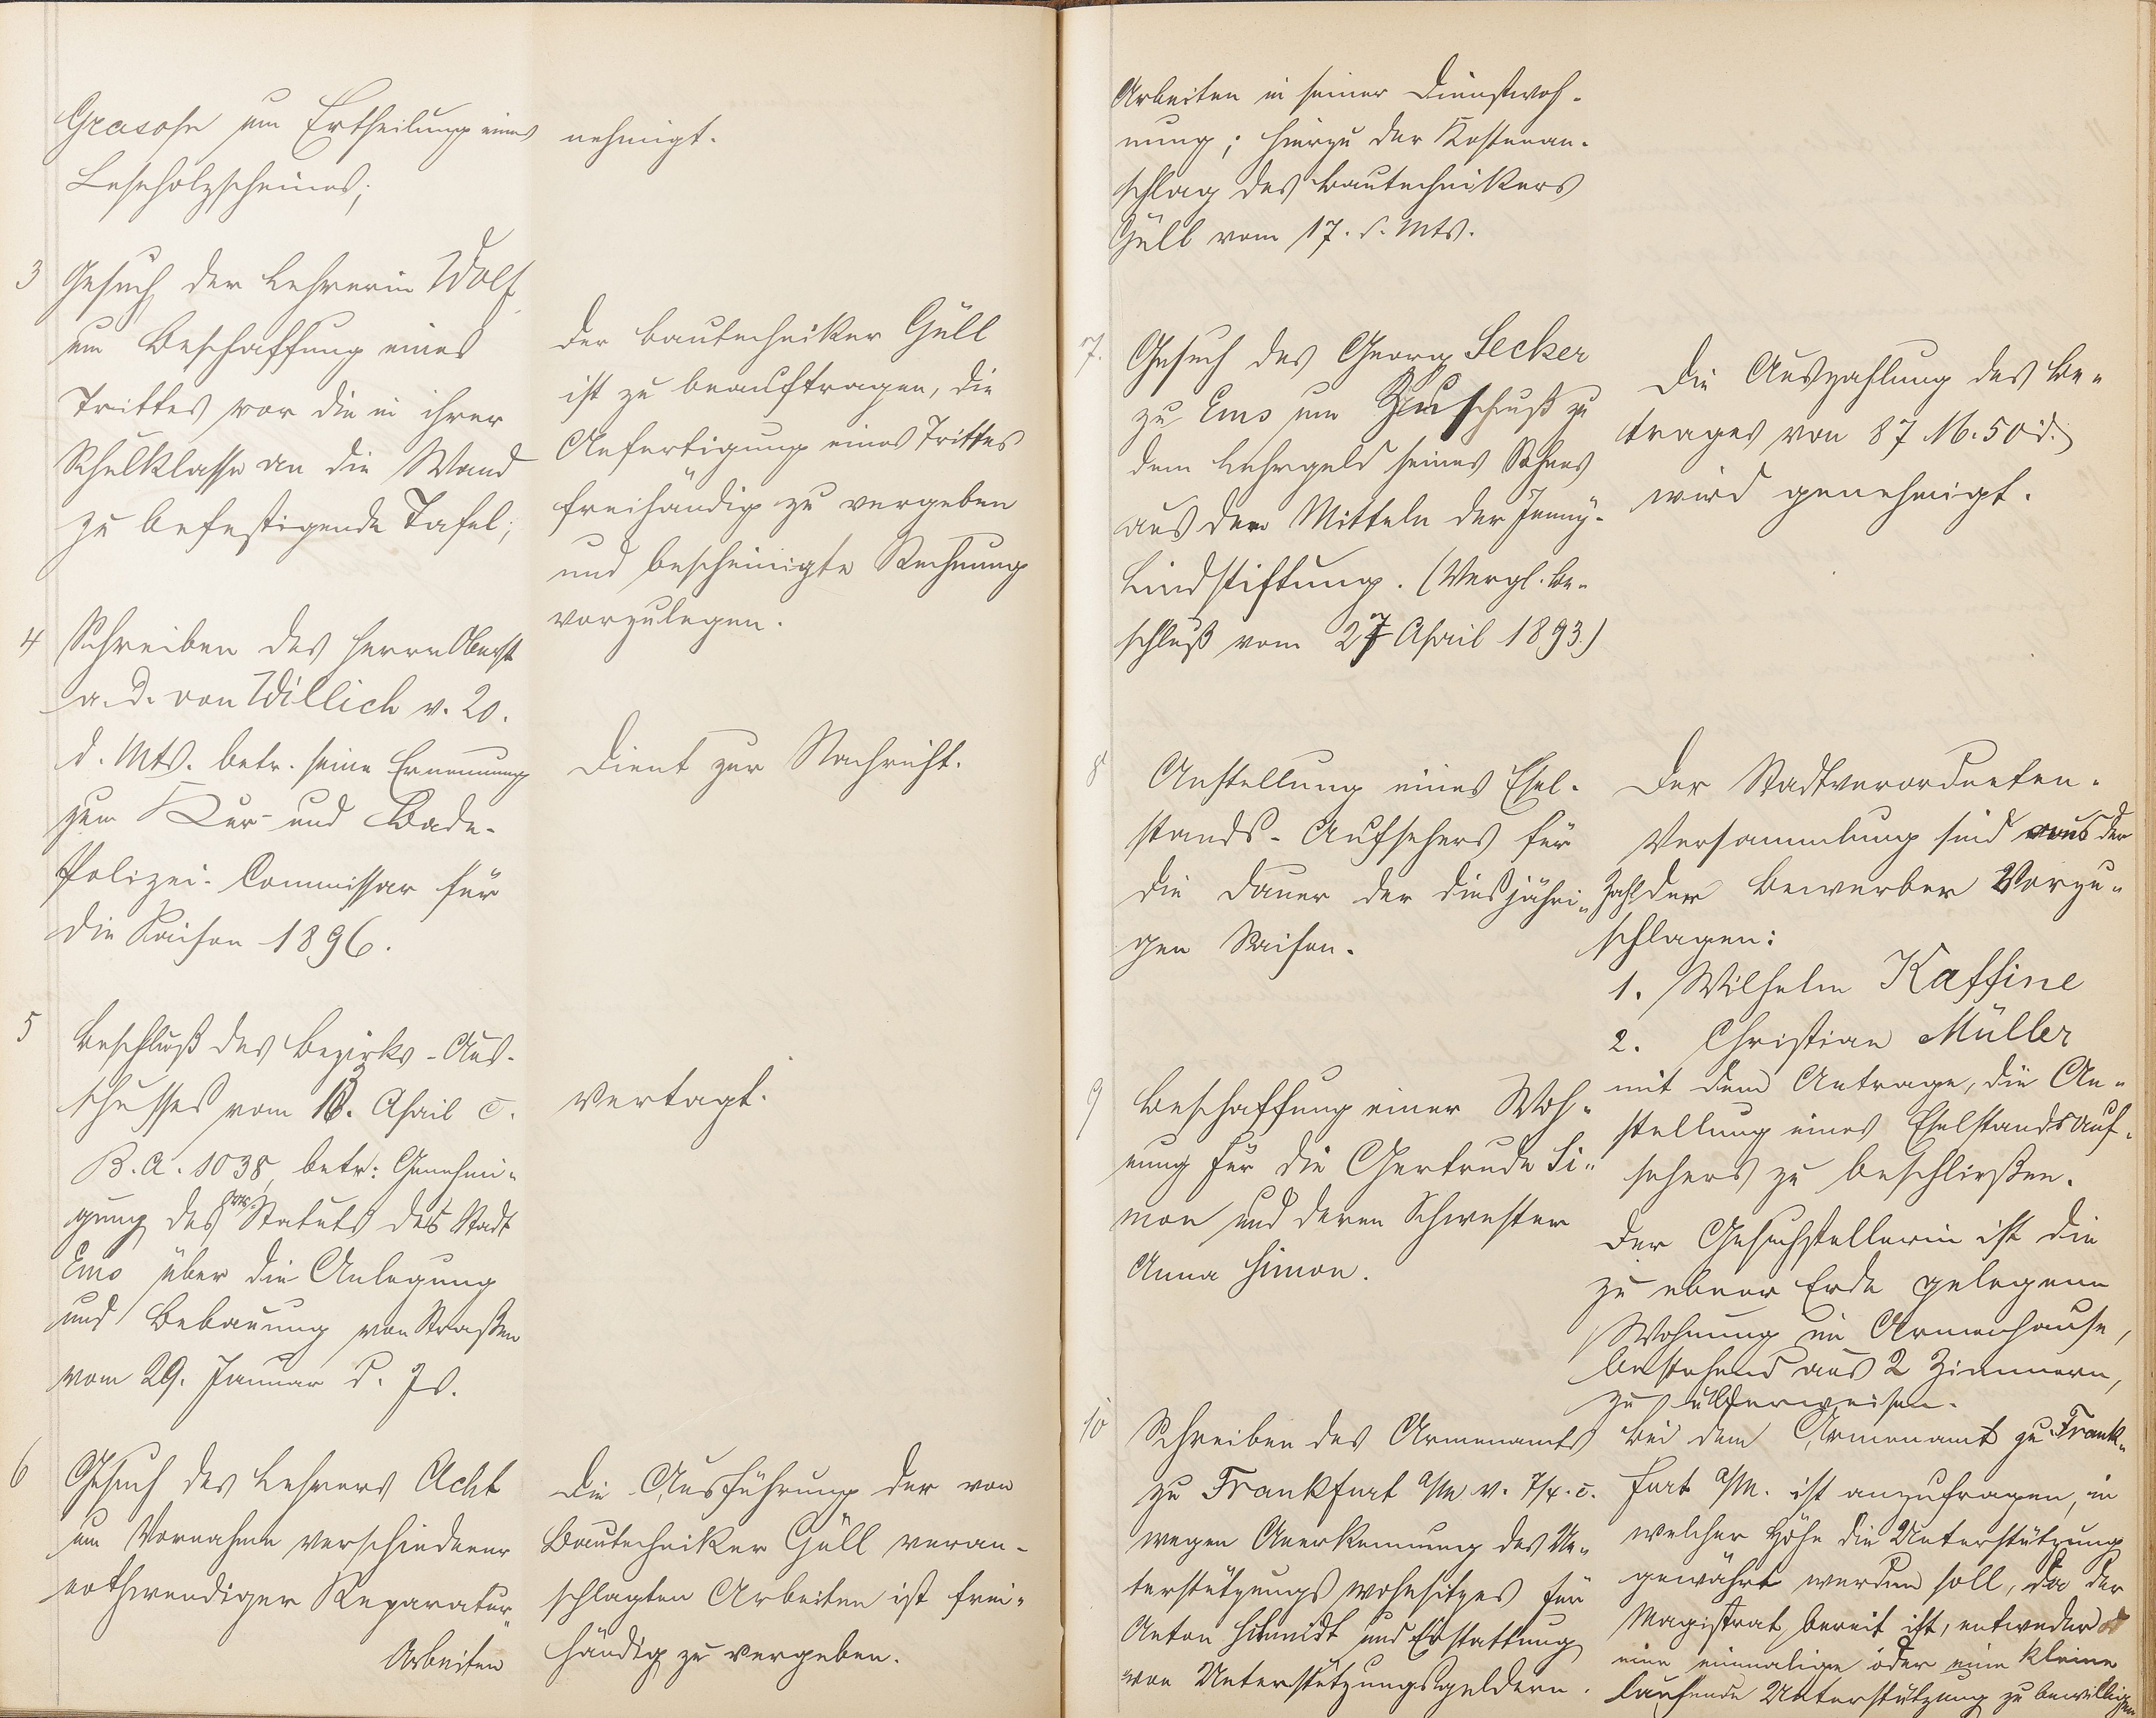 Grasosn um Ertheilung eines
Leseholzscheines;
nehmigt.
3 Gesuch der Lehrerin Wolf
um Beschaffung eines
Trittes vor die in ihrer
Schulklasse an die Wand
zu befestigende Tafel;
Der Bautechniker Güll
ist zu beauftragen, die
Anfertigung eines Trittes
freihändig zu vergeben
und bescheinigte Rechnung
vorzulegen.
4 Schreiben des Herrn Oberst
a. D. von Willich v. 20.
d. Mts. betr. seine Ernennung
zum Kur- und Bade-
Polizei-Commissar für
die Saison 1896.
Dient zur Nachricht.
5 Beschluß des Bezirks-Aus-
schusses vom 18. April c.
B. A. 1038, betr: Genehmi-
gung des Statuts der Stadt
Ems über die Anlegung
und Bebauung von Straßen
vom 29. Januar d. Js.
Vertagt.
6 Gesuch des Lehrers Acht
um Vornahme verschiedener
nothwendiger Reparatur-
Arbeiten
Die Ausführung der von
Bautechniker Güll veran-
schlagten Arbeiten ist frei-
händig zu vergeben.
Arbeiten in seiner Dienstwoh-
nung; hierzu der Kostenan-
schlag des Bautechnikers
Güll vom 17. d. Mts.
7. Gesuch des Georg Secker
zu Ems um Zuschuß zu
dem Lehrgeld seines Sohnes
aus den Mitteln der Jenny-
Lindstiftung. (Vergl. Be-
schluß vom 27 April 1893.)
Die Auszahlung des Be-
trages von 87 M. 50 d.
wird genehmigt.
8 Anstellung eines Esel-
stands-Aufsehers für
die Dauer der diesjähri-
gen Saison.
Der Stadtverordneten-
Versammlung sind aus der
Zahl der Bewerber Vorzu-
schlagen:
1. Wilhelm Kaffine
2. Christian Müller
mit dem Antrage, die An-
stellung eines Eselstandsauf-
sehers zu beschließen.
9 Beschaffung einer Woh-
nung für die Gertrude Si-
mon und deren Schwester
Anna Simon.
Der Gesuchstellerin ist die
zu ebener Erde gelegene
Wohnung im Armenhause,
bestehend aus 2 Zimmern,
zu überweisen.
10 Schreiben des Armenamts
zu Frankfurt a/M v. 7/4. c.
wegen Anerkennung des Un-
terstützungswohnsitzes für
Anton Schmidt und Erstattung
von Unterstützungsgeldern.
Bei dem Armenamt zu Frank-
furt a/M. ist anzufragen, in
welcher Höhe die Unterstützung
gewährt werden soll, da der
Magistrat bereit ist, entweder
eine einmalige oder eine kleine
laufende Unterstützung zu bewilligen